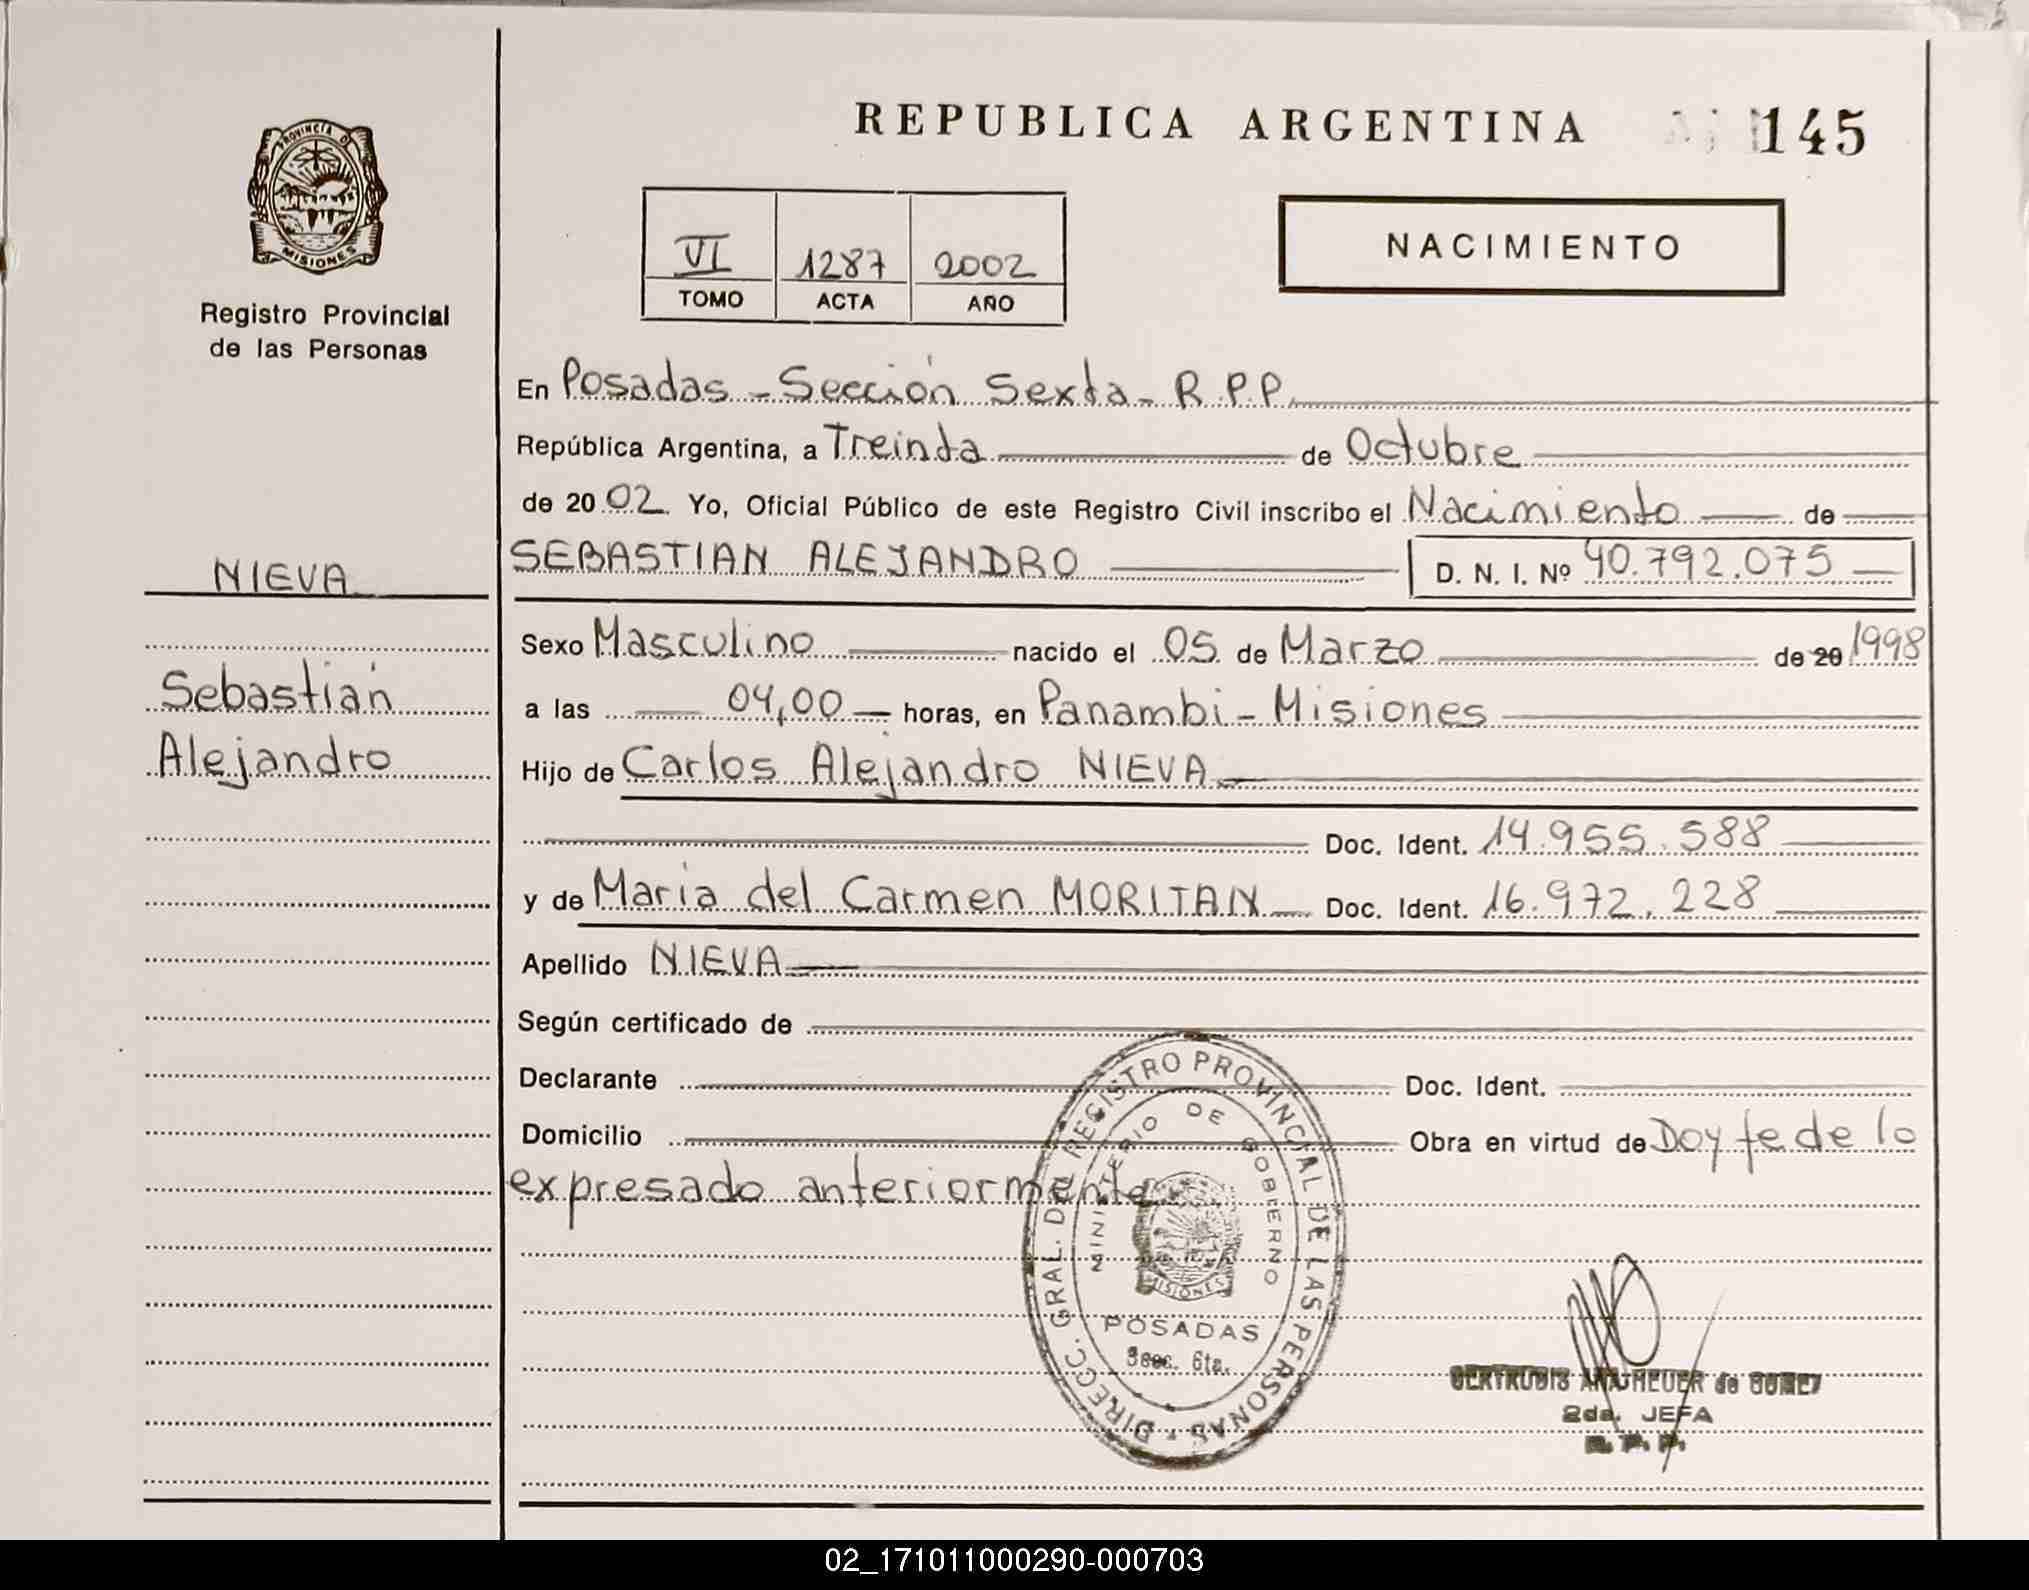 REPUBLICA ARGENTINA 145
PROVINCIA D
MISIONES
Registro Provincial
de las Personas
VI 1287 2002
TOMO ACTA AÑO
NACIMIENTO
En Posadas - Sección Sexta - R.P.P.
República Argentina, a Treinta de Octubre
de 2002 Yo, Oficial Público de este Registro Civil inscribo el Nacimiento de
SEBASTIAN ALEJANDRO D. N. I. Nº 40.792.075
NIEVA
Sebastián
Alejandro
Sexo Masculino nacido el 05 de Marzo de 20 1998
a las 04,00 horas, en Panambi - Misiones
Hijo de Carlos Alejandro NIEVA
Doc. Ident. 14.955.588
y de Maria del Carmen MORITAN Doc. Ident. 16.972.228
Apellido NIEVA
Según certificado de
Declarante Doc. Ident.
Domicilio Obra en virtud de Doy fe de lo
expresado anteriormente
DIRECC. GRAL. DE REGISTRO PROVINCIAL DE LAS PERSONAS
MINISTERIO DE GOBIERNO
MISIONES
POSADAS
Secc. 6ta.
GERTRUDIS de
2da. JEFA
R. P. P.
02_171011000290-000703